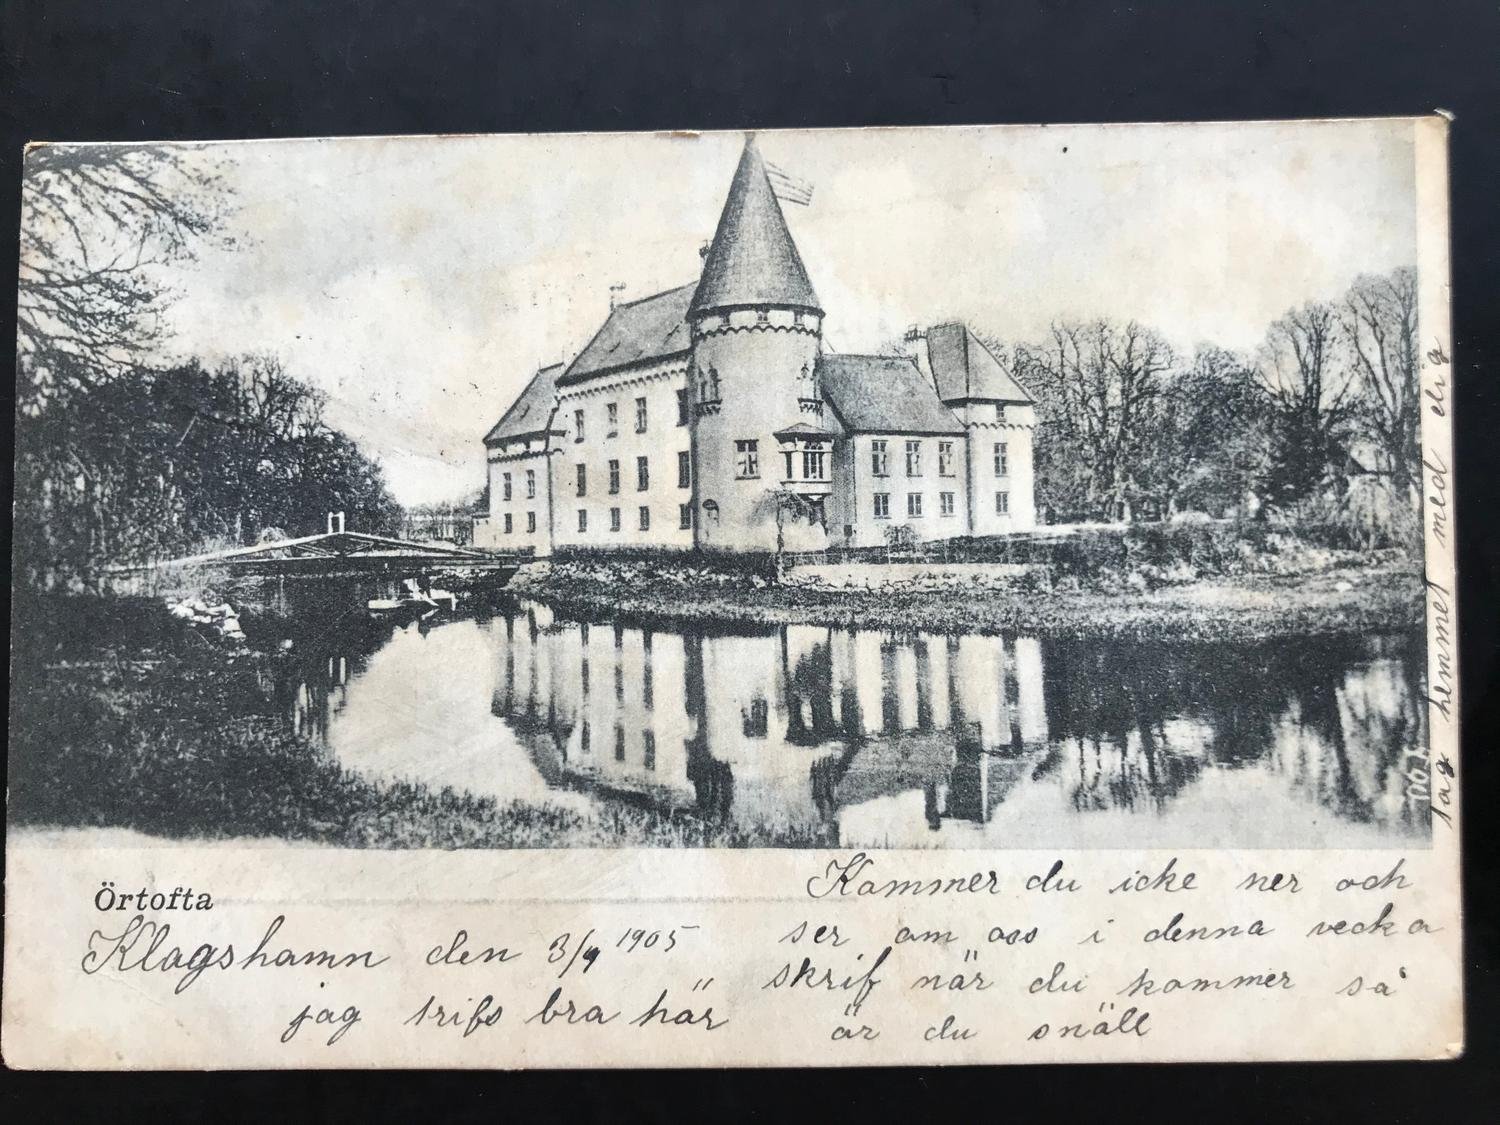 Örtofta
Klagshamn den 3/9 1905
jag trifs bra här
Kommer du icke ner och
ser om oss i denna vecka
skrif när du kommer så
är du snäll
tag hemmet med dig